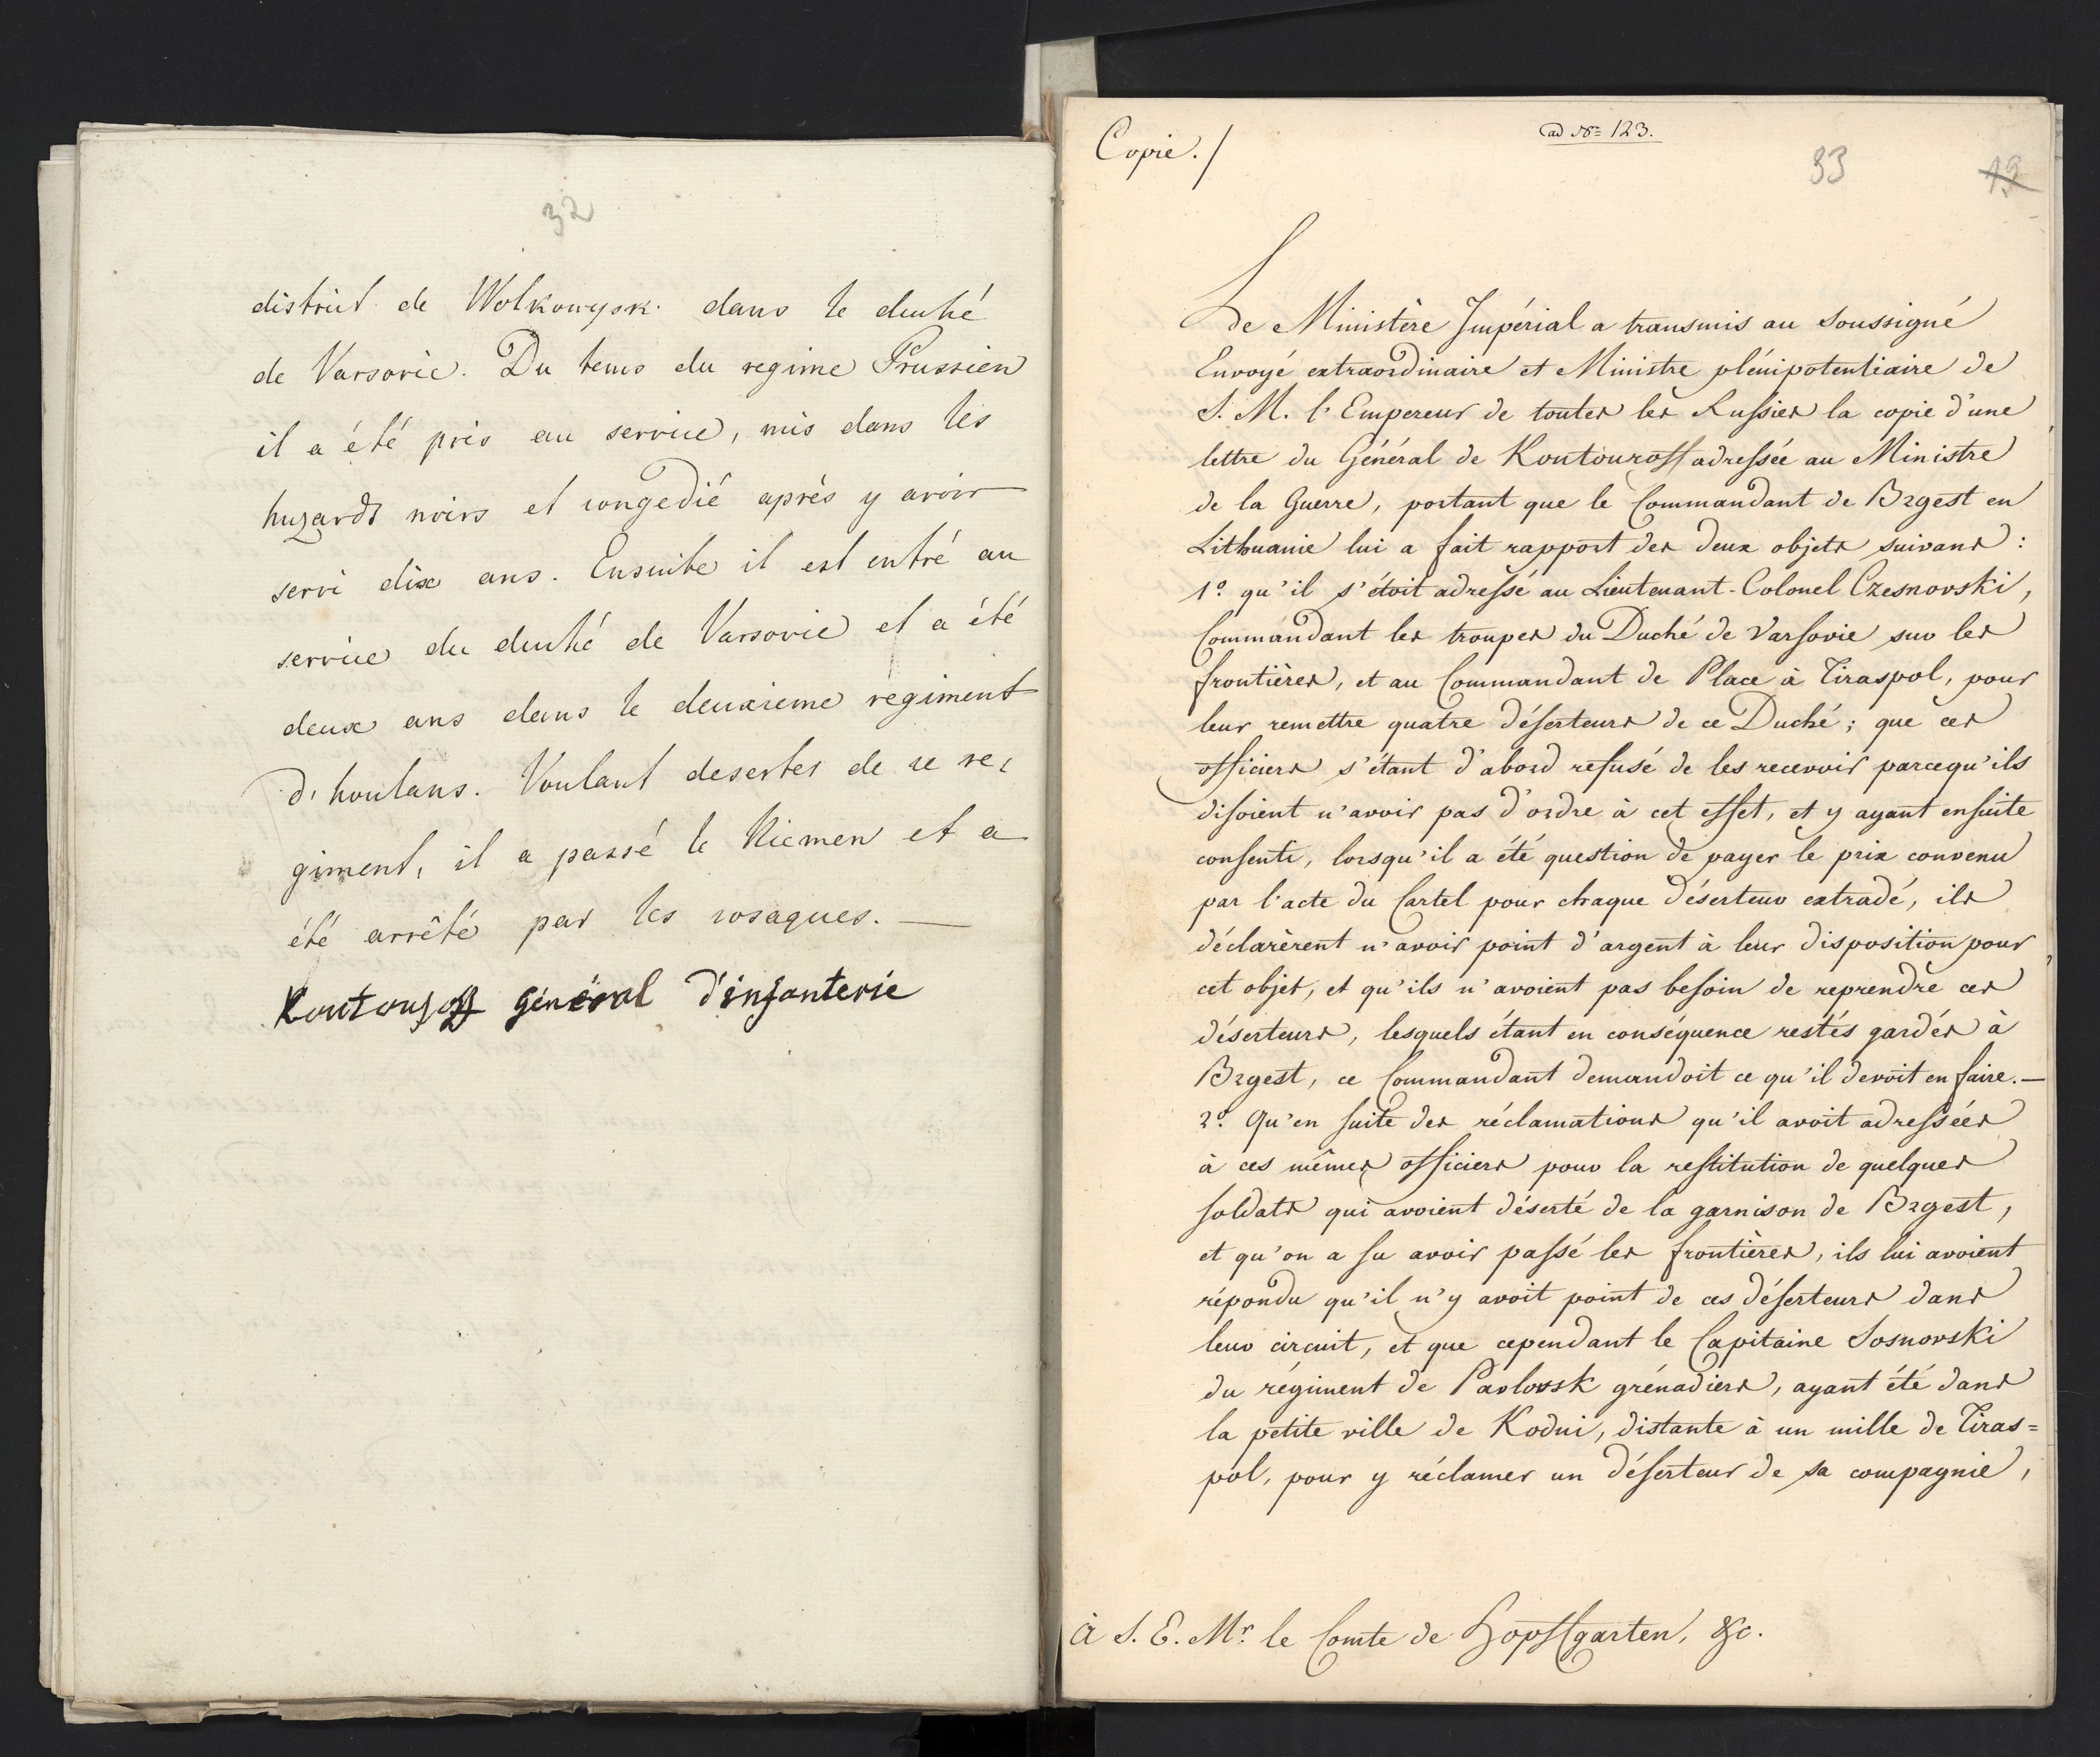 32
district de Wolkowysk dans le duché
de Varsovie. Du tems du regime Prussien
il a été pris au service, mis dans les
huzards noirs et congedié après y avoir
servi dix ans. Ensuite il est entré au
service du duché de Varsovie et a été
deux ans dans le deuxieme regiment
d'houlans. Voulant deserter de ce re,
giment, il a passé le Niemen et a
été arrêté par les cosaques. —
Koutousoff général d'infanterie
Copie./
ad No 123.
33
19
Le Ministère Impérial a transmis au Soussigné
Envoyé extraordinaire et Ministre plénipotentiaire de
S. M. l'Empereur de toutes les Russies la copie d'une
lettre du Général de Koutouzoff adressée au Ministre
de la Guerre, portant que le Commandant de Brzest en
Lithuanie lui a fait rapport des deux objets suivans :
1o qu'il s'étoit adressé au Lieutenant-Colonel Czesnovski,
Commandant les troupes du Duché de Varsovie sur les
frontières, et au Commandant de Place à Tiraspol, pour
leur remettre quatre déserteurs de ce Duché ; que ces
officiers s'étant d'abord refusé de les recevoir parcequ'ils
disoient n'avoir pas d'ordre à cet effet, et y ayant ensuite
consenti, lorsqu'il a été question de payer le prix convenu
par l'acte du Cartel pour chaque déserteur extradé, ils
déclarèrent n'avoir point d'argent à leur disposition pour
cet objet, et qu'ils n'avoient pas besoin de reprendre ces
déserteurs, lesquels étant en conséquence restés gardés à
Brzest, ce Commandant demandoit ce qu'il devoit en faire. —
2o Qu'en suite des réclamations qu'il avoit adressées
à ces mêmes officiers pour la restitution de quelques
soldats qui avoient déserté de la garnison de Brzest,
et qu'on a su avoir passé les frontières, ils lui avoient
répondu qu'il n'y avoit point de ces déserteurs dans
leur circuit, et que cependant le Capitaine Sosnovski
du régiment de Pavlovsk grénadiers, ayant été dans
la petite ville de Kodni, distante à un mille de Tiras=
pol, pour y réclamer un déserteur de sa compagnie,
à S. E. Mr le Comte de Hopffgarten, &c.